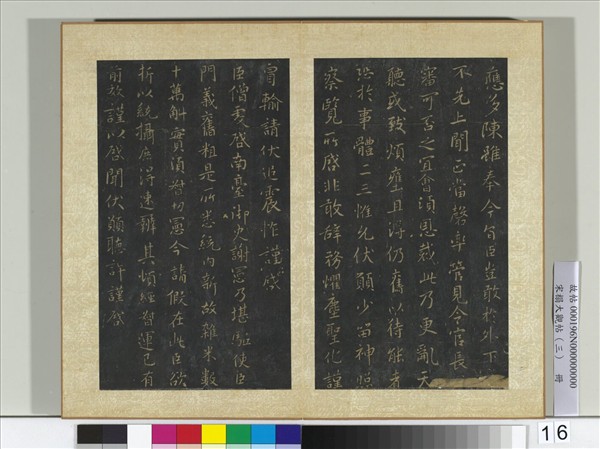 應多陳雖奉今旨臣豈敢於外下
不先上聞正當磬率管見今官長
審可否之宜會須恩裁此乃更亂天
聽或致煩壅且得仍舊以待能者
恐於事體二三惟允伏願少留神照
察覽所啓非敢辭務懼塵聖化謹
冒輪請伏追震怍謹啓
臣僧虔啓南臺御史謝憲乃堪驅使臣
門義舊粗是所悉統內新故雜米數
十萬斛實須督切憲今請假在此臣欲
折以統攝庶得速辦其煩經智運已有
前效謹以啓聞伏願聽許謹啓
故帖 000196N000000000
宋榻大觀帖（三） 冊
16